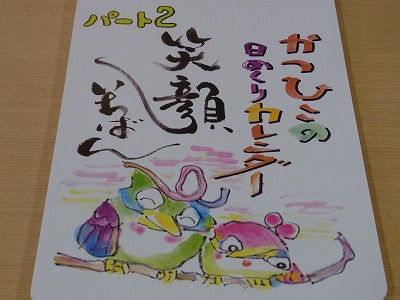 パート2
かつひこの
日めくりカレンダー
笑顔
いちばん